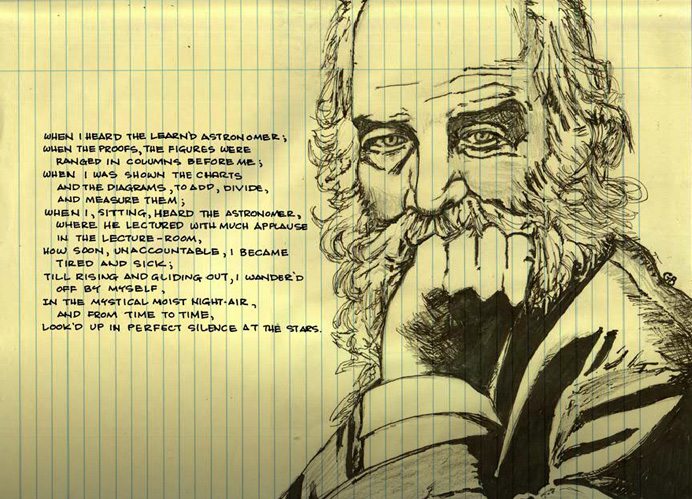 WHEN I HEARD THE LEARN'D ASTRONOMER;
WHEN THE PROOFS, THE FIGURES WERE
RANGED IN COLUMNS BEFORE ME;
WHEN I WAS SHOWN THE CHARTS
AND THE DIAGRAMS, TO ADD, DIVIDE,
AND MEASURE THEM;
WHEN I, SITTING, HEARD THE ASTRONOMER,
WHERE HE LECTURED WITH MUCH APPLAUSE
IN THE LECTURE-ROOM,
HOW SOON, UNACCOUNTABLE, I BECAME
TIRED AND SICK;
TILL RISING AND GLIDING OUT, I WANDER'D
OFF BY MYSELF,
IN THE MYSTICAL MOIST NIGHT-AIR,
AND FROM TIME TO TIME,
LOOK'D UP IN PERFECT SILENCE AT THE STARS.